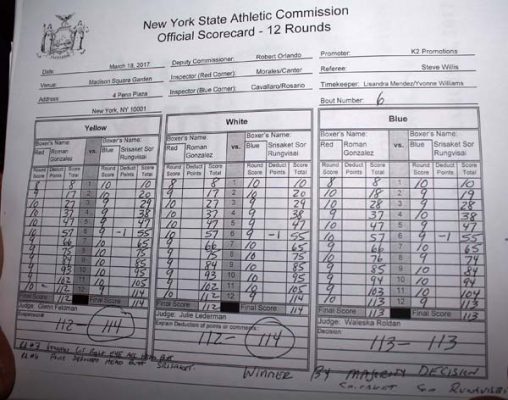 New York State Athletic Commission
Official Scorecard - 12 Rounds
Date March 18, 2017 Deputy Commissioner: Robert Orlando Promoter: K2 Promotions
Venue: Madison Square Garden Inspector (Red Corner): Morales/Cantor Referee: Steve Willis
Address 4 Penn Plaza Inspector (Blue Corner): Cavallaro/Rosario Timekeeper: Lisandra Mendez/Yvonne Williams
New York, NY 10001 Bout Number: 6
Yellow White Blue
Boxer's Name: Boxer's Name: Boxer's Name: Boxer's Name: Boxer's Name: Boxer's Name:
Red Roman Gonzalez vs. Blue Srisaket Sor Rungvisai Red Roman Gonzalez vs. Blue Srisaket Sor Rungvisai Red Roman Gonzalez vs. Blue Srisaket Sor Rungvisai
Round Score Deduct Points Score Total Round Score Deduct Points Score Total Round Score Deduct Points Score Total Round Score Deduct Points Score Total Round Score Deduct Points Score Total Round Score Deduct Points Score Total
8 8 1 10 10 8 8 1 10 10 8 8 1 10 10
9 17 2 10 20 9 17 2 10 20 10 18 2 9 19
10 27 3 9 29 10 27 3 9 29 10 28 3 9 28
10 37 4 9 38 10 37 4 9 38 9 37 4 10 38
10 47 5 9 47 10 47 5 9 47 10 47 5 9 47
10 57 6 9 -1 55 10 57 6 9 -1 55 10 57 6 9 -1 55
9 66 7 10 65 9 66 7 10 65 9 66 7 10 65
9 75 8 10 75 9 75 8 10 75 10 76 8 9 74
9 84 9 10 85 9 85 9 10 84
93 10 95 93 10 95 94 10 94
102 11 105 11 11
112 12 114 112 12 114 113 12 113
Final Score 112 Final Score 114 Final Score 112 Final Score 114 Final Score 113 Final Score 113
Judge: Glenn Feldman Judge: Julie Lederman Judge: Waleska Roldan
Explain Deduction of points or comments: Decision:
112 - 114 112 - 114 113 - 113
WINNER BY MAJORITY DECISION